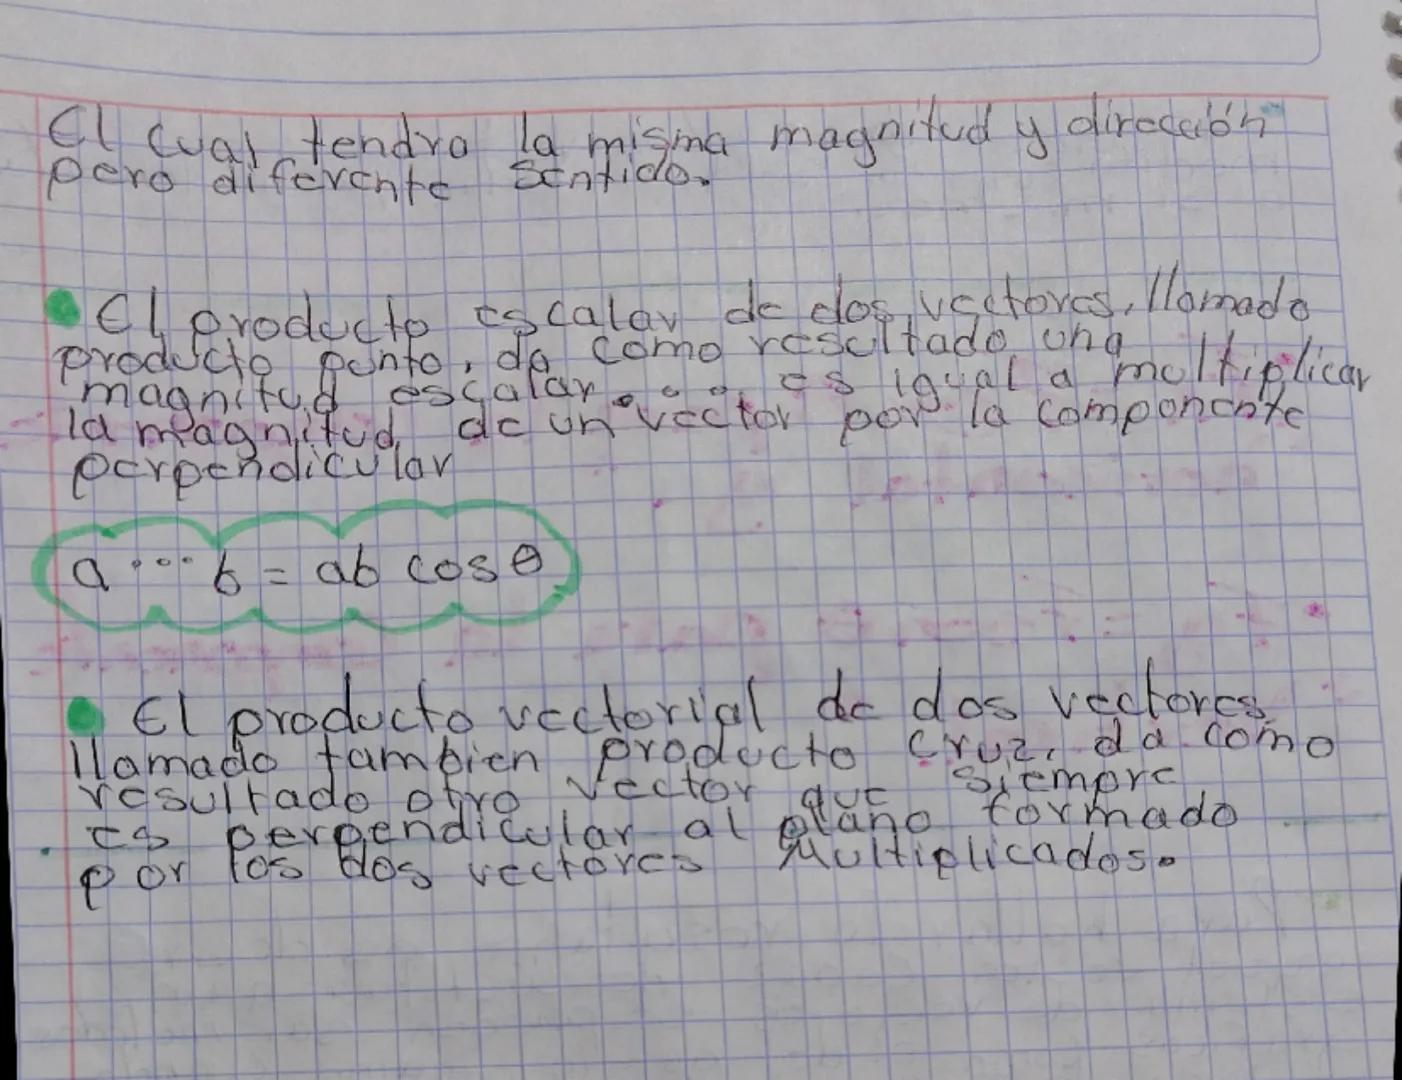 El cual tendra la misma magnitud y dirección
pero diferente sentido.
El producto escalar de dos vectores, llamado
producto punto, da como resultado una
magnitud escalar... es igual a multiplicar
la magnitud de un vector por la componente
perpendicular
a ... b = ab cos θ
El producto vectorial de dos vectores
llamado tambien producto cruz, da como
resultado otro vector que siempre
es perpendicular al plano formado
por los dos vectores Multiplicados.